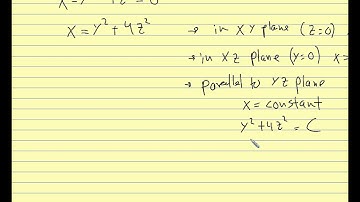 x = y² + 4z²
→ in XY plane (z=0)
→ in XZ plane (y=0) x =
→ parallel to YZ plane
x = constant
y² + 4z² = C